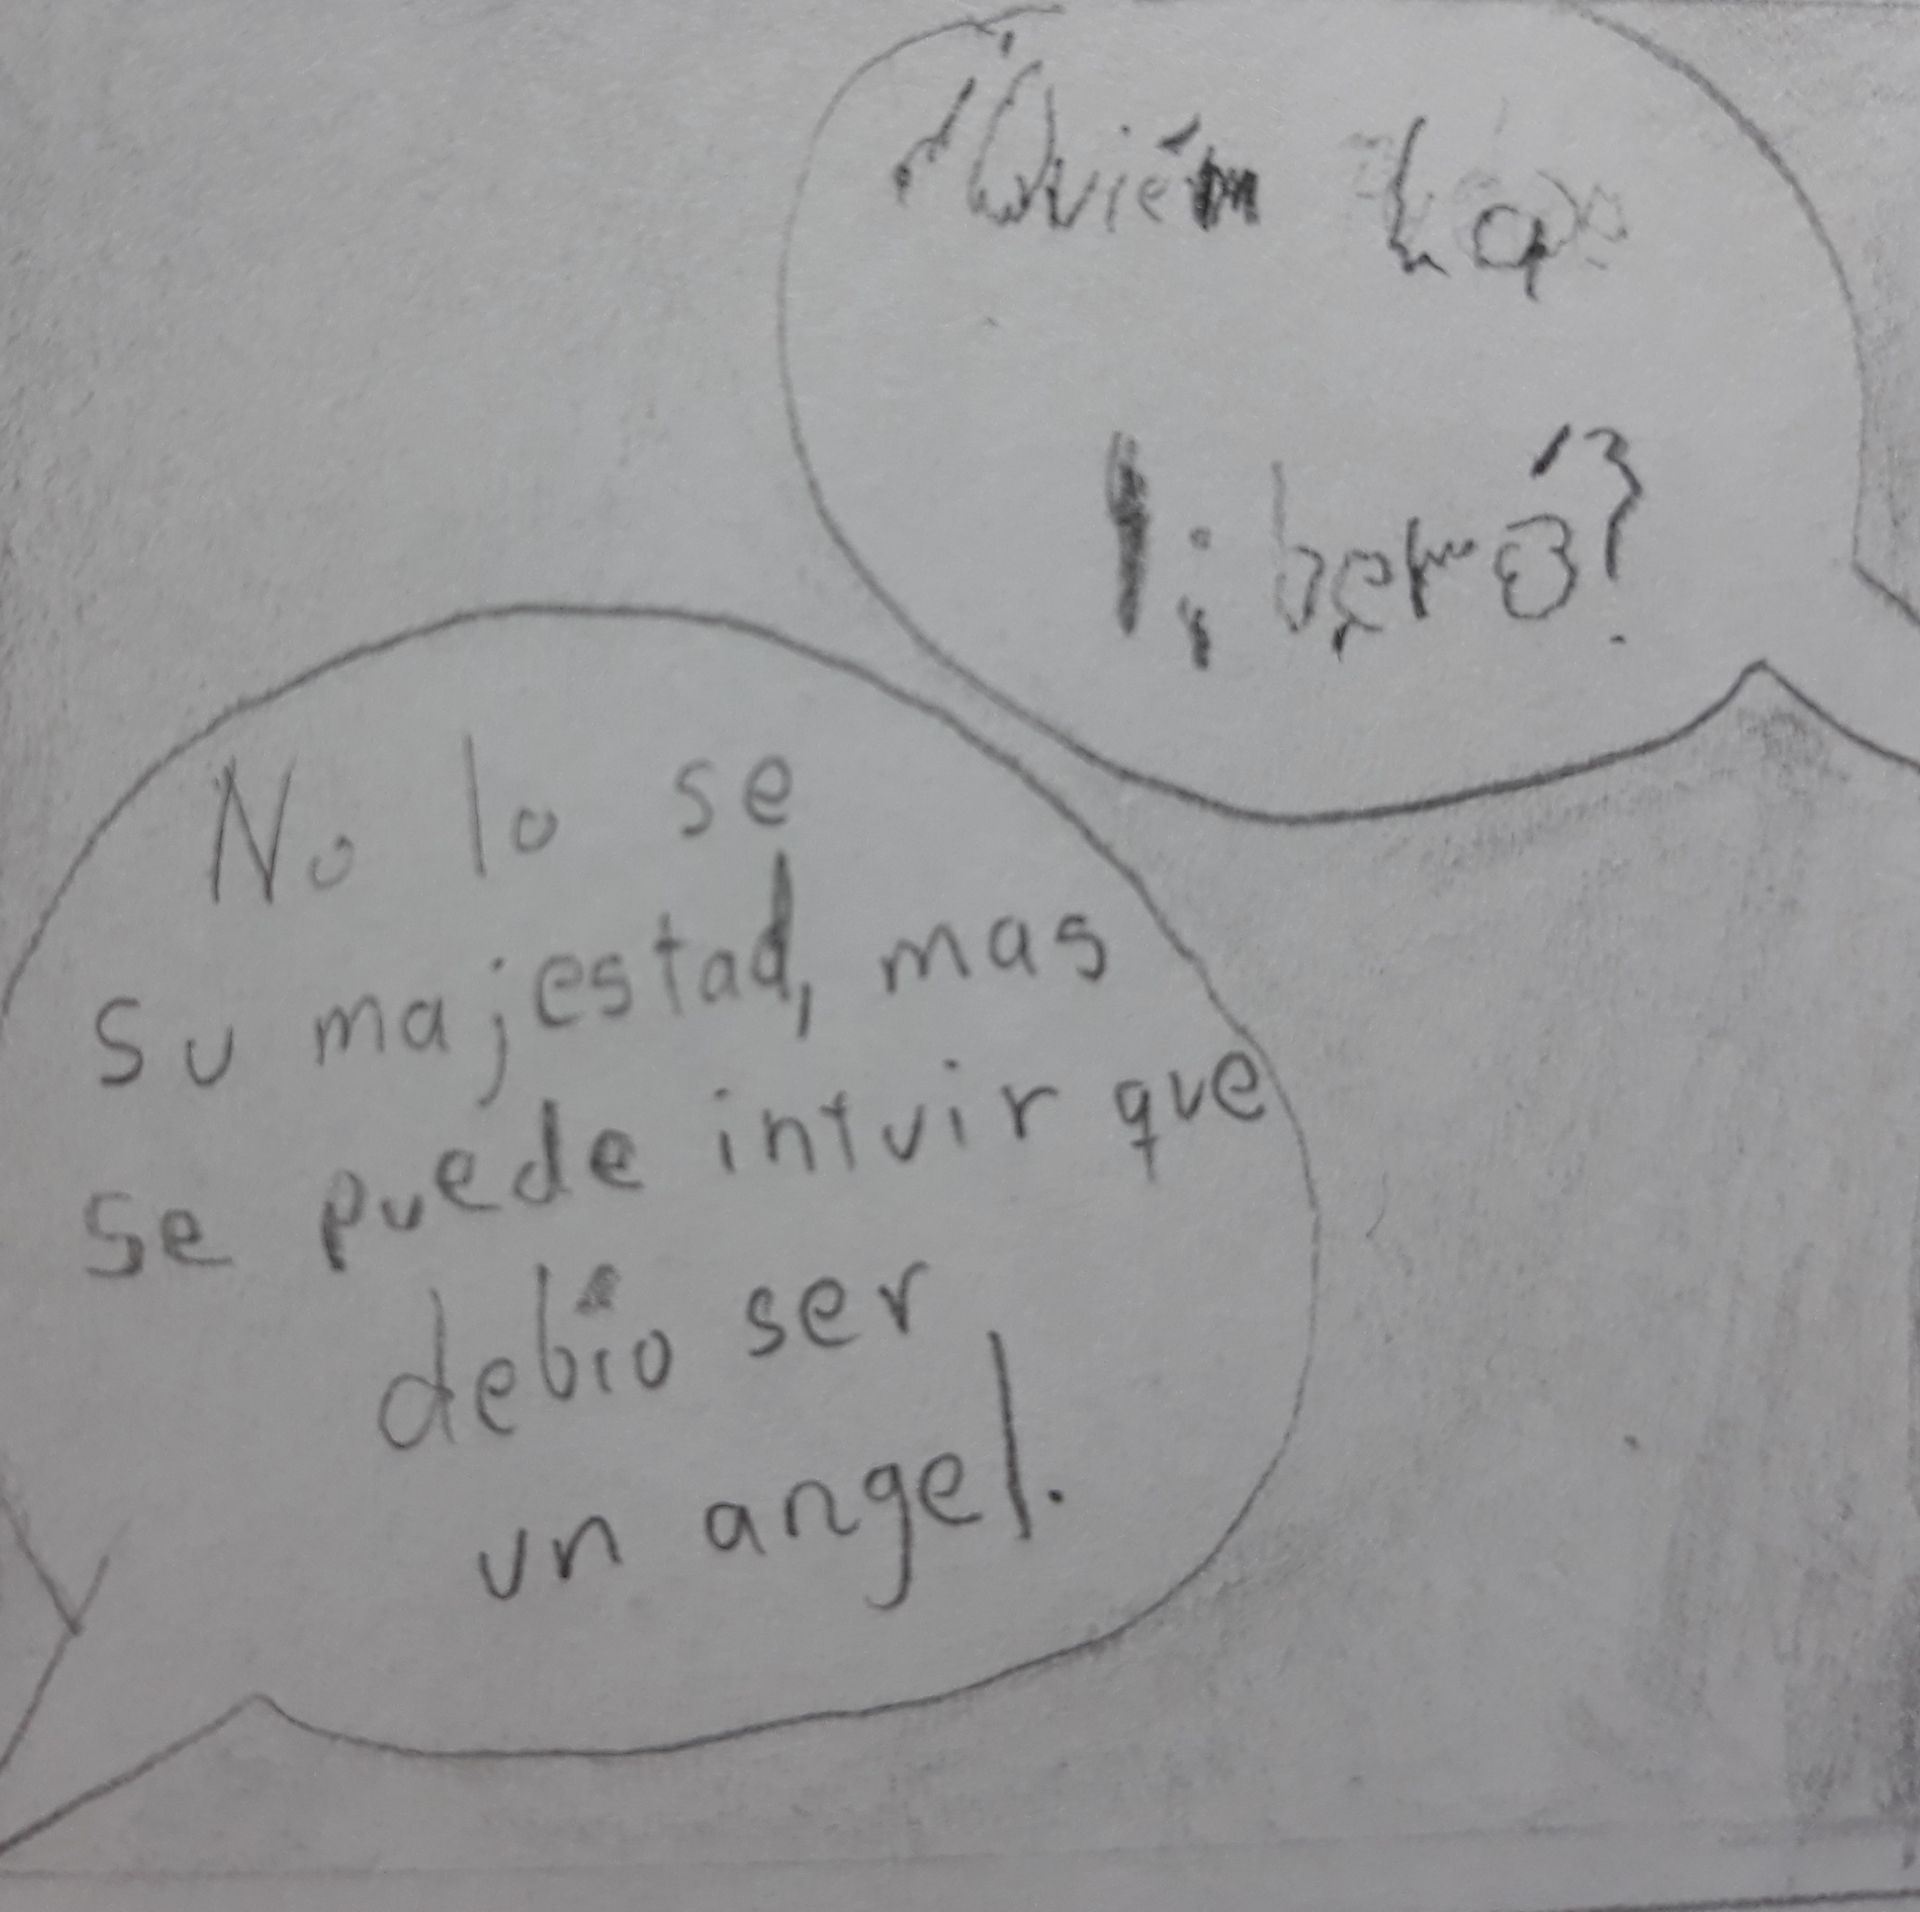 ¿Quién la
liberó?
No lo se
su majestad, mas
se puede intuir que
debío ser
un angel.